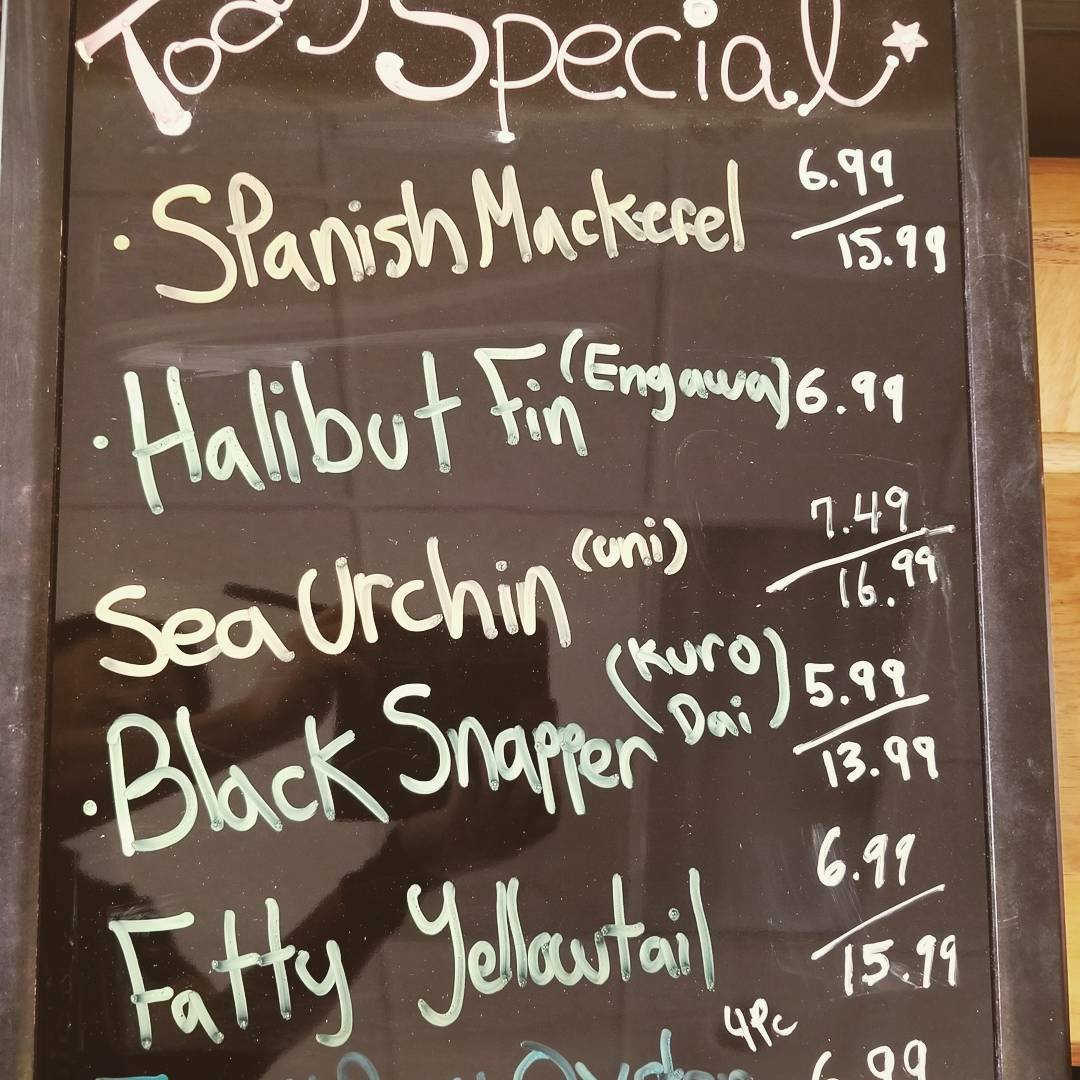 Today Special
· Spanish Mackerel 6.99
15.99
· Halibut Fin (Engawa) 6.99
Sea Urchin (uni) 7.49
16.99
· Black Snapper (Kuro Dai) 5.99
13.99
Fatty Yellowtail 6.99
15.99
Oyster 4Pc 6.99